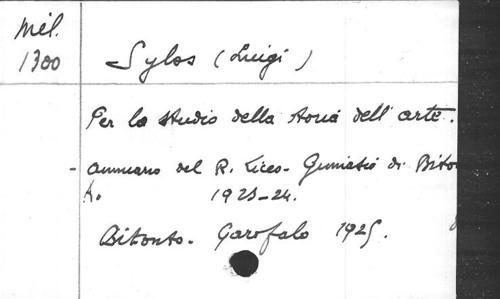 Mél.
1300
Sylos (Luigi)
Per lo studio della storia dell'arte.
- annuario del R. Liceo-Ginnasio di Bito
1923-24.
Bitonto. Garofalo 1925.